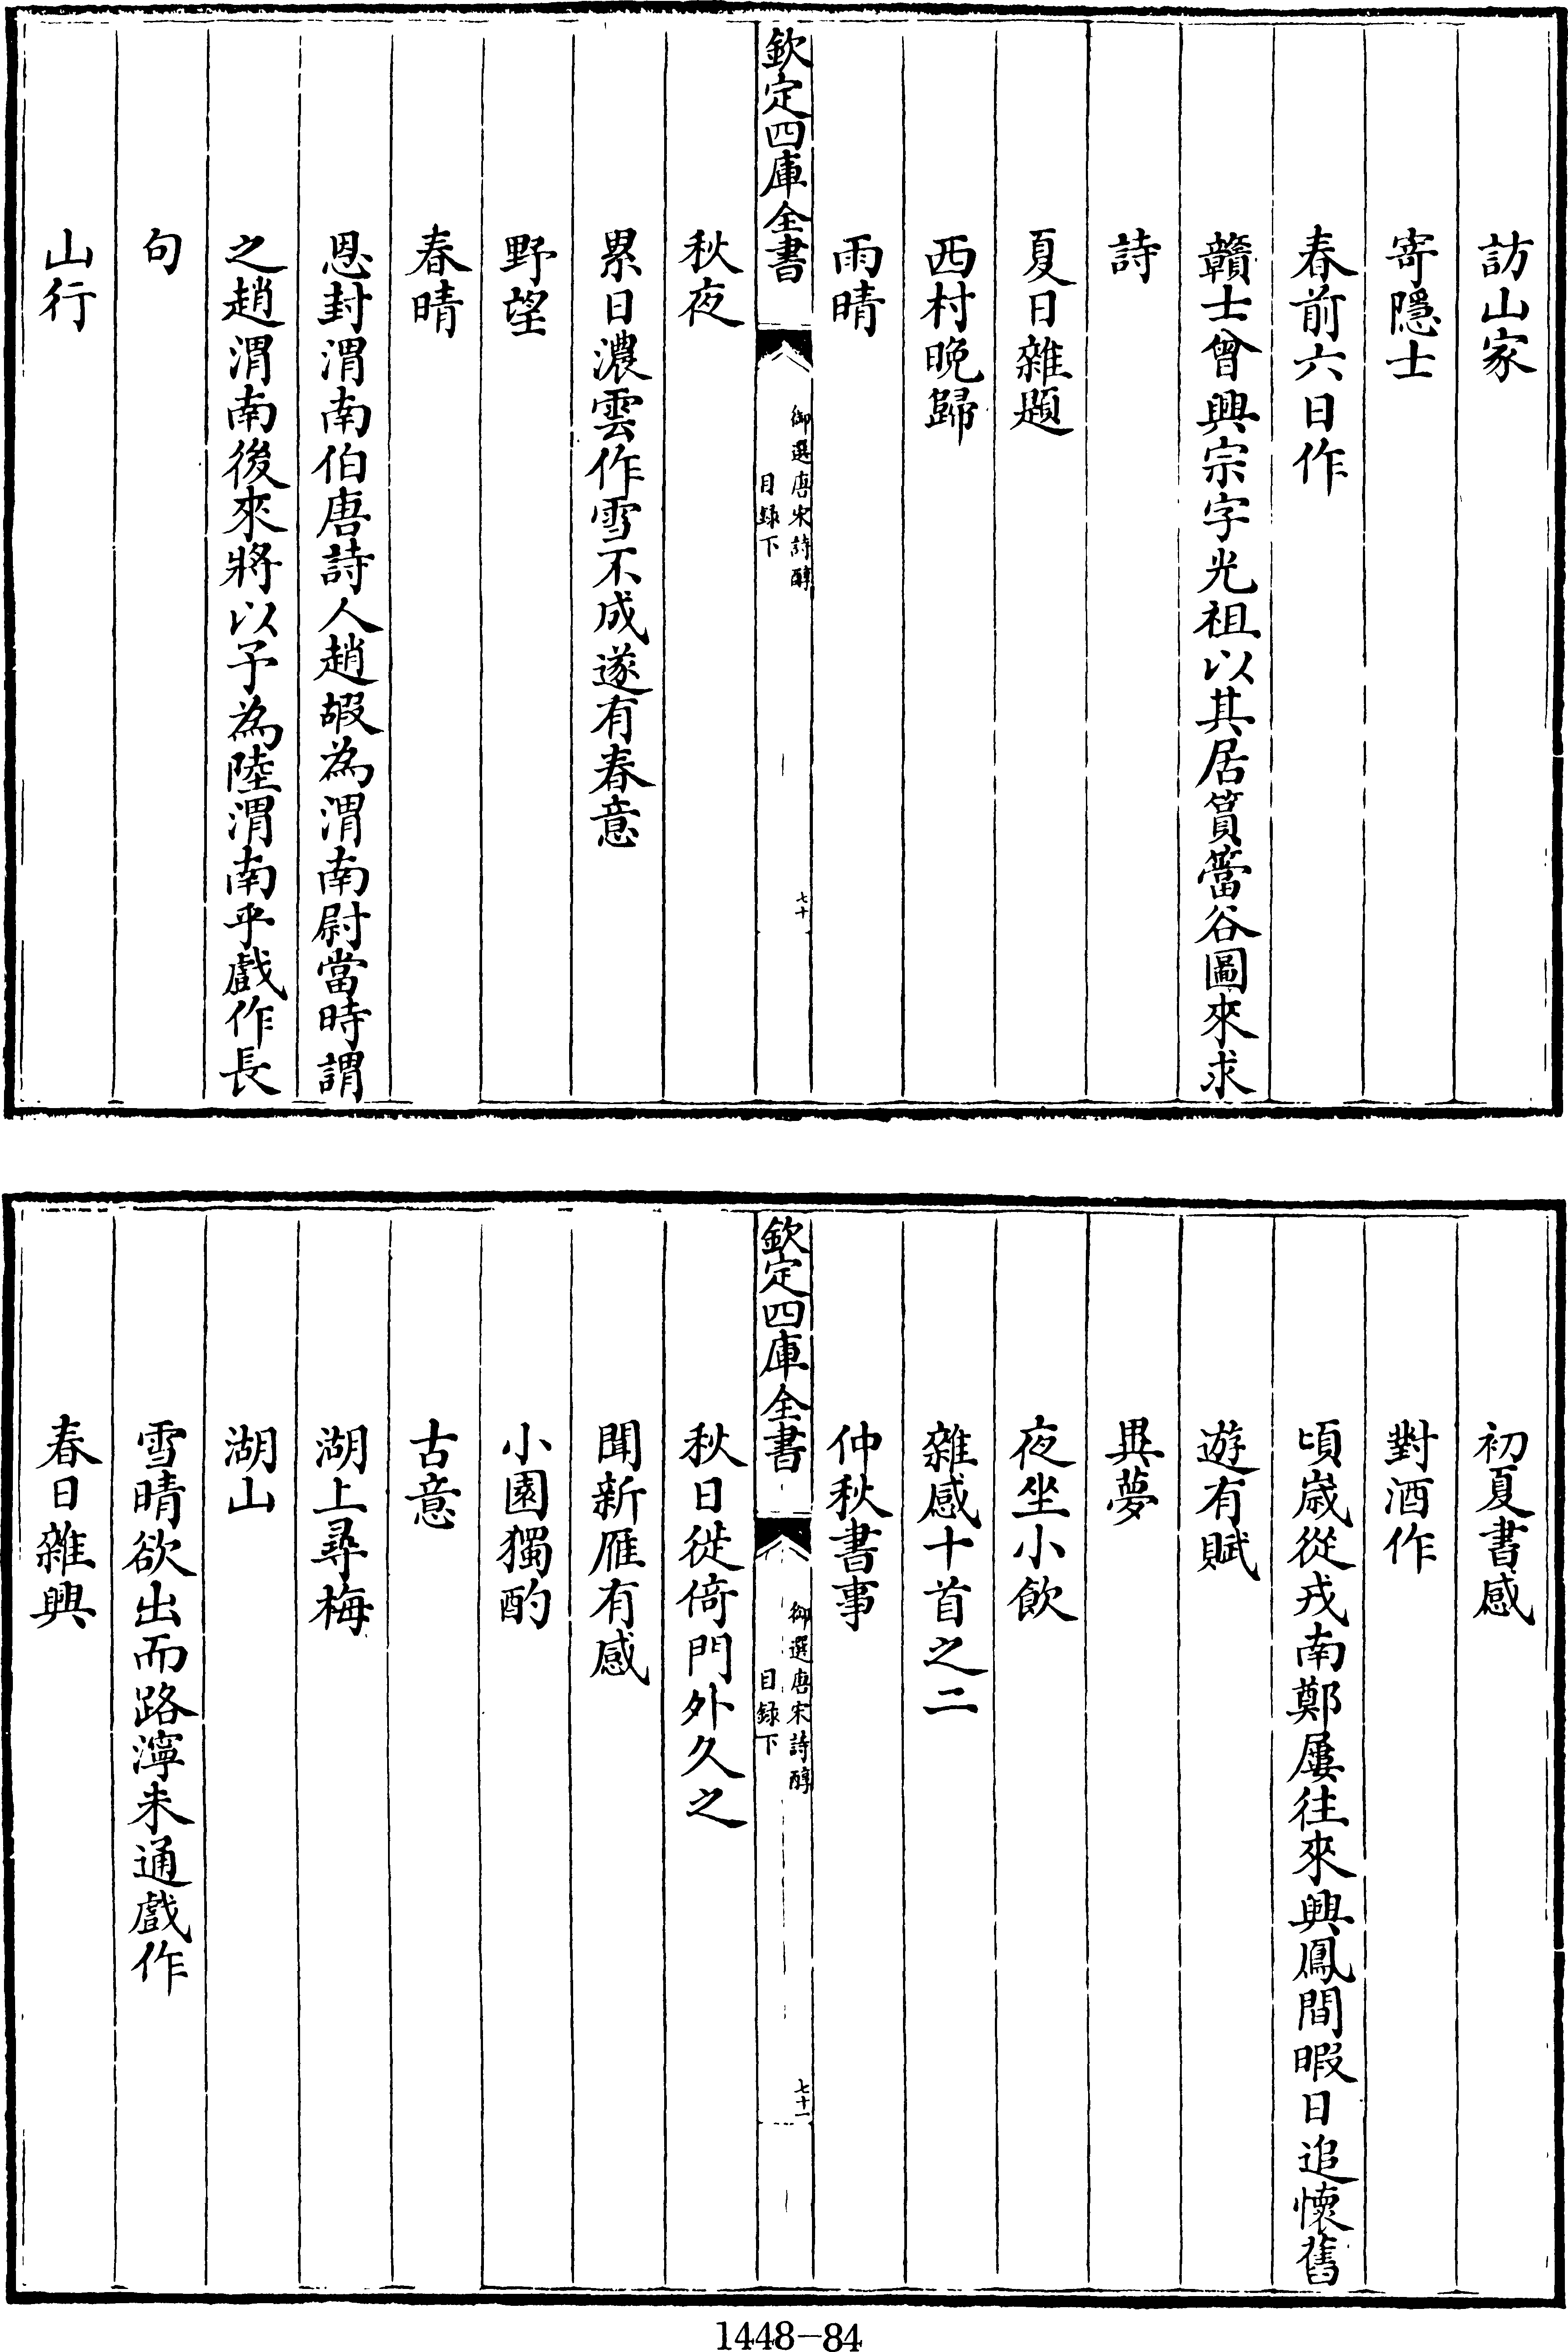 訪山家
寄隱士
春前六日作
贛士曾興宗字光祖以其居篔簹谷圖來求
詩
夏日雜題
西村晚歸
雨晴
欽定四庫全書
御選唐宋詩醇
目録下
七十
秋夜
累日濃雲作雪不成遂有春意
野望
春晴
恩封渭南伯唐詩人趙嘏為渭南尉當時謂
之趙渭南後來將以予為陸渭南乎戲作長
句
山行
初夏書感
對酒作
頃歲從戎南鄭屢往來興鳳間暇日追懷舊
遊有賦
異夢
夜坐小飲
雜感十首之二
仲秋書事
欽定四庫全書
御選唐宋詩醇
目録下
七十一
秋日徙倚門外久之
聞新雁有感
小園獨酌
古意
湖上尋梅
湖山
雪晴欲出而路濘未通戲作
春日雜興
1448-84